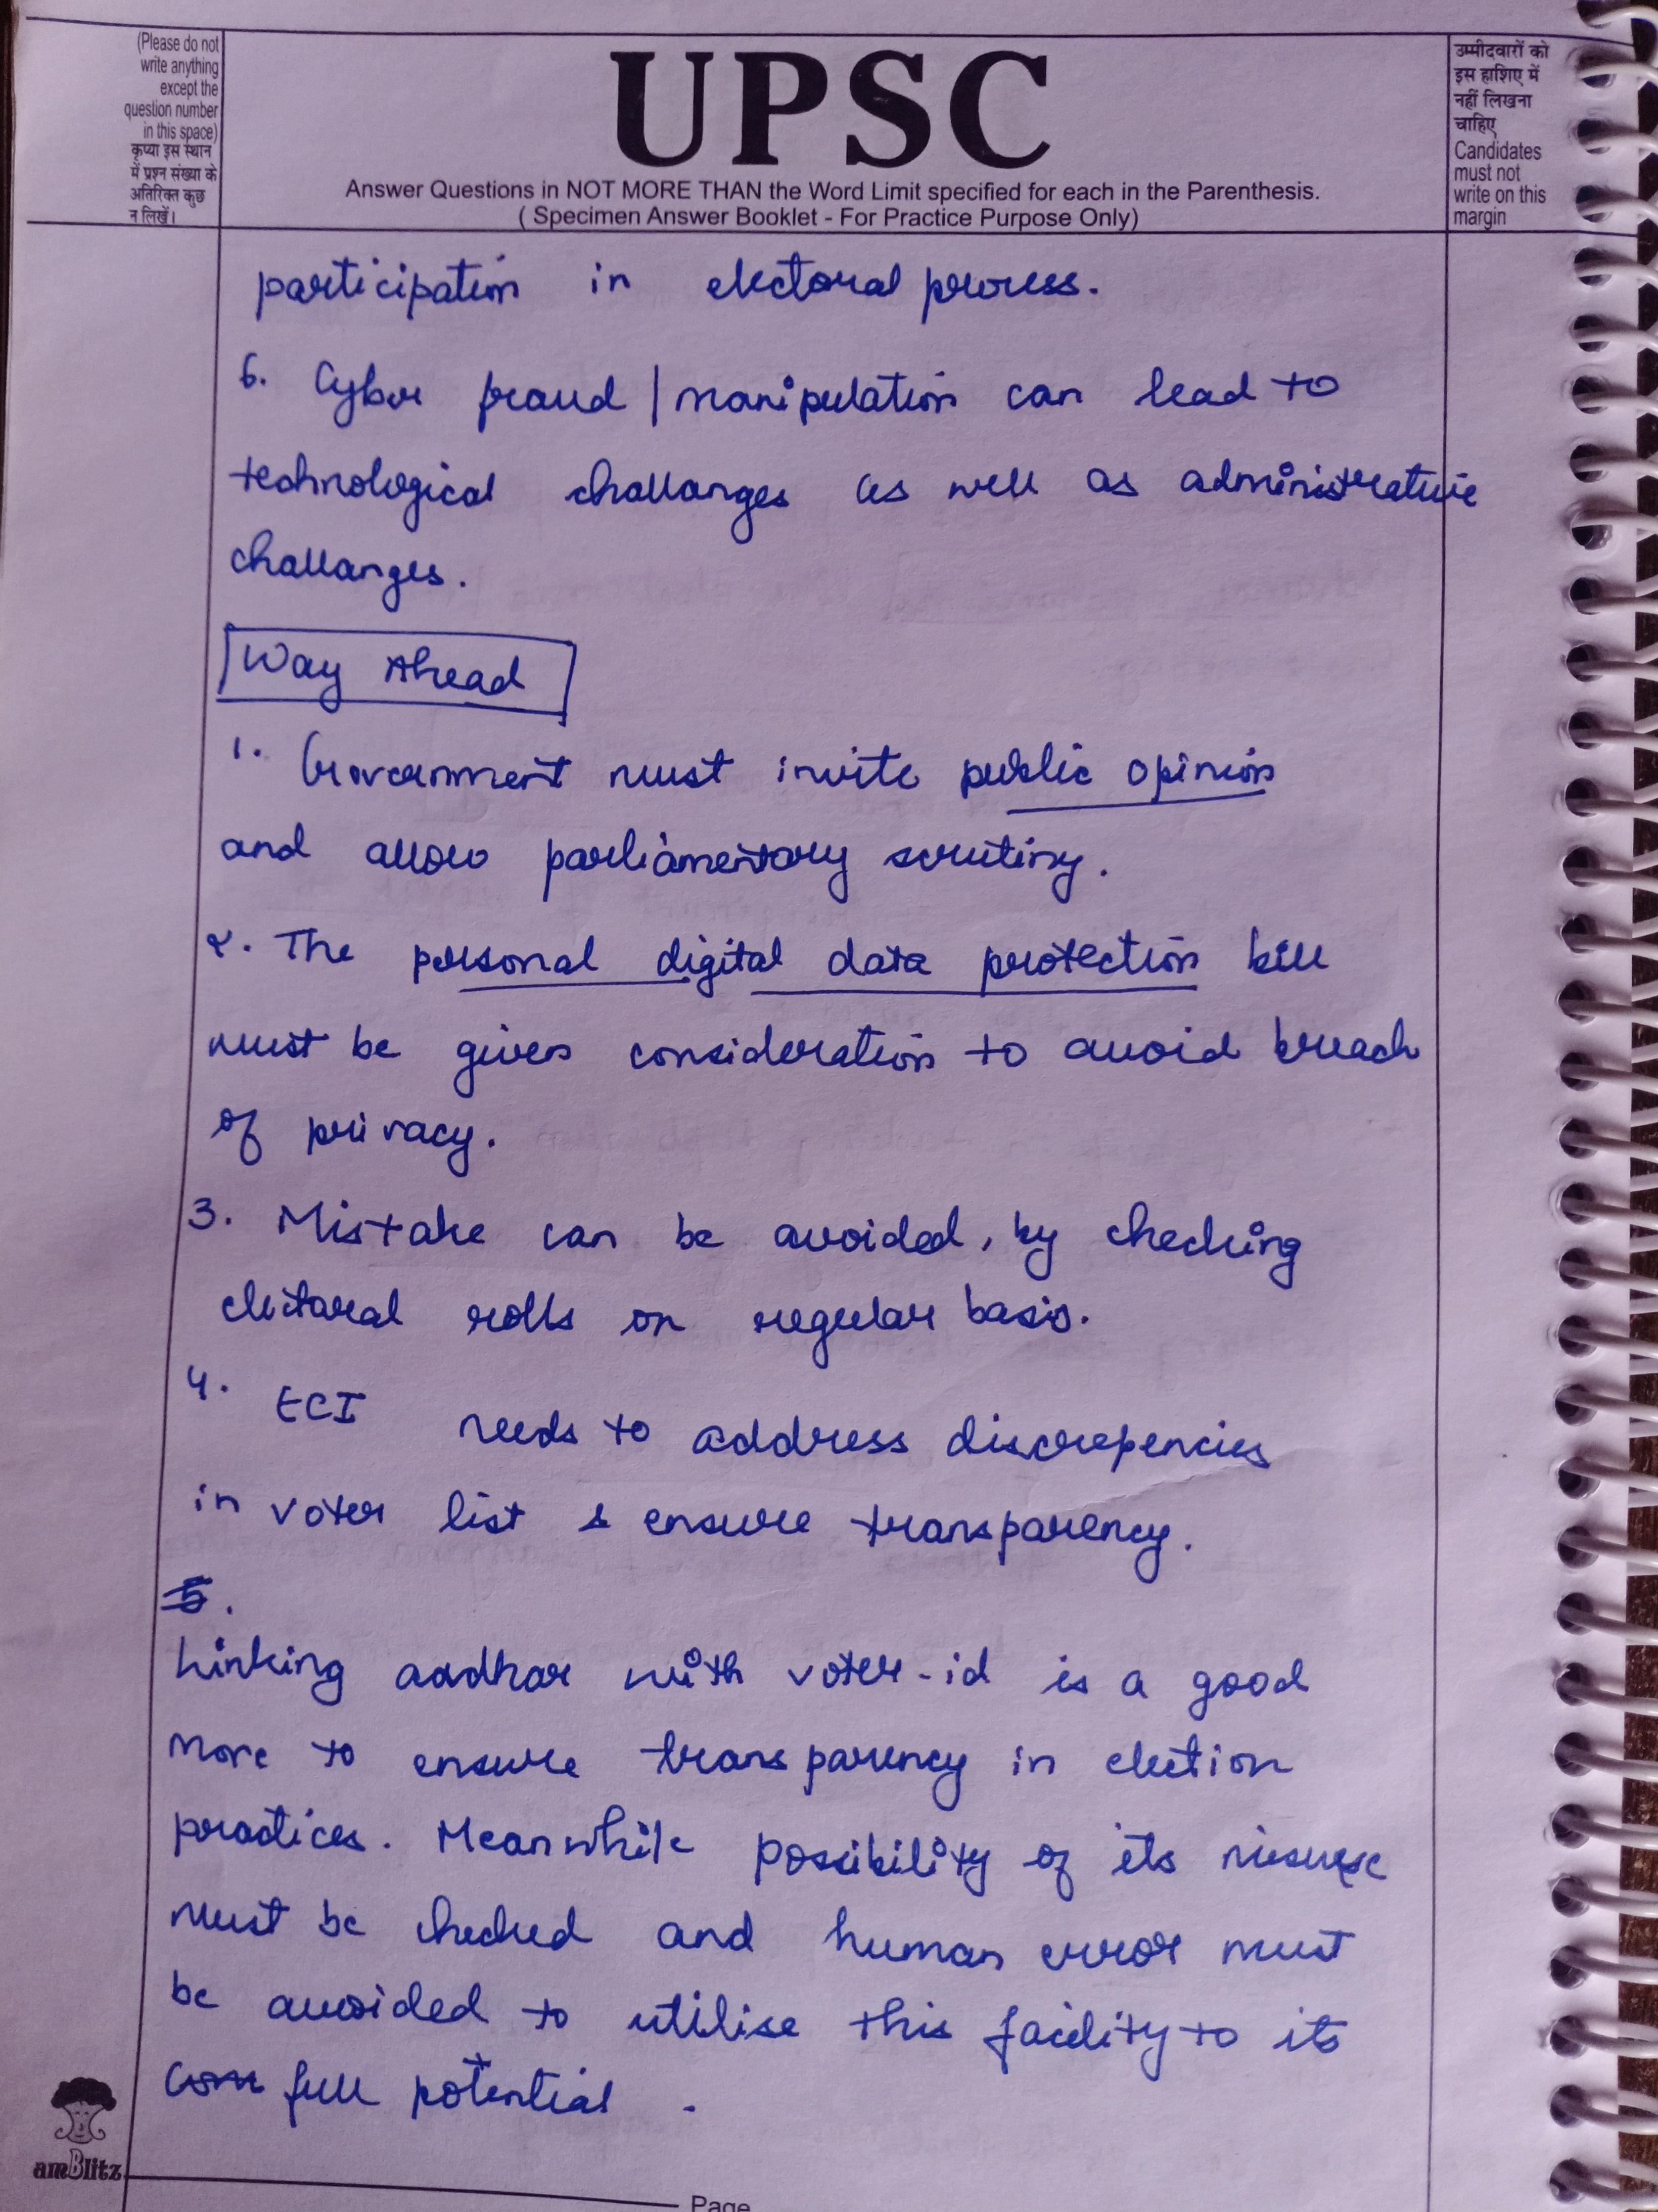 (Please do not
write anything
except the
question number
in this space)
कृप्या इस स्थान
में प्रश्न संख्या के
अतिरिक्त कुछ
न लिखें।
UPSC
Answer Questions in NOT MORE THAN the Word Limit specified for each in the Parenthesis.
( Specimen Answer Booklet - For Practice Purpose Only)
उम्मीदवारों को
इस हाशिए में
नहीं लिखना
चाहिए
Candidates
must not
write on this
margin
participation in electoral process.
6. Cyber fraud / manipulation can lead to
technological challanges as well as administrative
challanges.
Way Ahead
1. Government must invite public opinion
and allow parliamentary scrutiny.
2. The personal digital data protection bill
must be given consideration to avoid breach
of privacy.
3. Mistake can be avoided, by checking
electoral rolls on regular basis.
4. ECI needs to address discrepencies
in voter list & ensure transparency.
5.
Linking aadhar with voter-id is a good
move to ensure transparency in election
practices. Meanwhile possibility of its misuse
must be checked and human error must
be avoided to utilise this facility to its
full potential.
amBlitz
Page